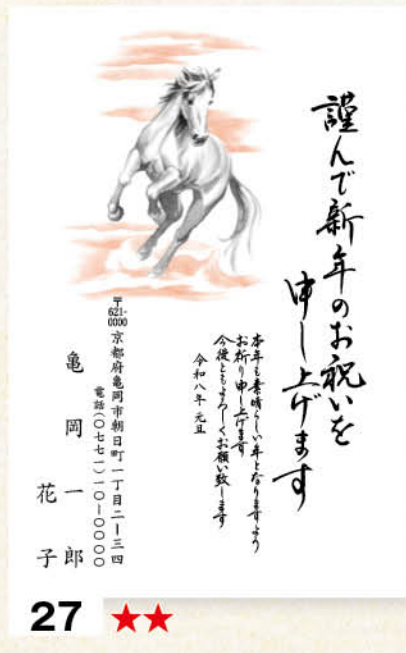 謹んで新年のお祝いを
申し上げます
本年も素晴らしい年となりますよう
お祈り申し上げます
今後ともよろしくお願い致します
令和八年 元旦
〒621-0000
京都府亀岡市朝日町一丁目二ー三四
電話(〇七七一)一〇ー〇〇〇〇
亀岡 一郎
花子
27 ★★